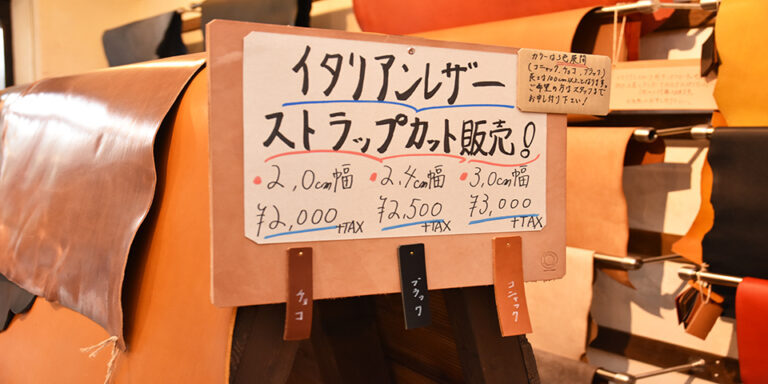 イタリアンレザー
ストラップカット販売!
•2,0cm幅 •2,4cm幅 •3,0cm幅
¥2,000+TAX ¥2,500+TAX ¥3,000+TAX
カラーは3色展開
(コニャック、チョコ、ブラック)
長さは100cm以上となります。
ご希望の方はスタッフまで
お申し付け下さい!
チョコ
ブラック
コニャック